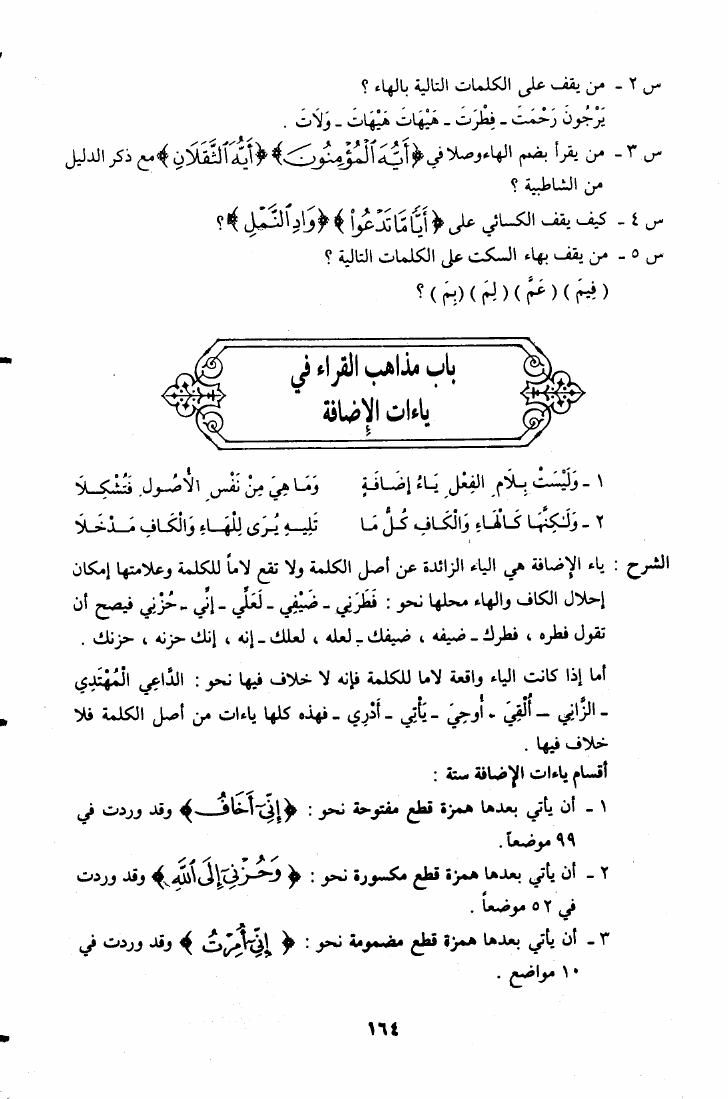 س ٢ - من يقف على الكلمات التالية بالهاء ؟
يَرْجُونَ رَحْمَتَ - فِطْرَتَ - هَيْهَاتَ هَيْهَاتَ - وَلَاتَ .
س ٣ - من يقرأ بضم الهاء وصلا في ﴿ أَيُّهَ ٱلْمُؤْمِنُونَ ﴾ ﴿ أَيُّهَ ٱلثَّقَلَانِ ﴾ مع ذكر الدليل
من الشاطبية ؟
س ٤ - كيف يقف الكسائي على ﴿ أَيًّا مَّا تَدْعُوا۟ ﴾ ﴿ وَادِ ٱلنَّمْلِ ﴾ ؟
س ٥ - من يقف بهاء السكت على الكلمات التالية ؟
( فِيمَ ) ( عَمَّ ) ( لِمَ ) ( بِمَ ) ؟
باب مذاهب القراء في
ياءات الإضافة
١ - وَلَيْسَتْ بِلَامِ الفِعْلِ يَاءُ إضَافَةٍ وَمَا هِيَ مِنْ نَفْسِ الْأصُولِ فَتُشْكِلَا
٢ - وَلَٰكِنَّهَا كَالْهَاءِ وَالْكَافِ كُلُّ مَا تَلِيهِ يُرَى لِلْهَاءِ وَالْكَافِ مَدْخَلَا
الشرح : ياء الإضافة هي الياء الزائدة عن أصل الكلمة ولا تقع لاماً للكلمة وعلامتها إمكان
إحلال الكاف والهاء محلها نحو : فَطَرَنِي - ضَيْفِي - لَعَلِّي - إنِّي - حُزْنِي فيصح أن
تقول فطره ، فطرك - ضيفه ، ضيفك - لعله ، لعلك - إنه ، إنك حزنه ، حزنك .
أما إذا كانت الياء واقعة لاما للكلمة فإنه لا خلاف فيها نحو : الدَّاعِي الْمُهْتَدِي
- الزَّانِي - أُلْقِيَ - أُوحِيَ - يَأْتِي - أَدْرِي - فهذه كلها ياءات من أصل الكلمة فلا
خلاف فيها .
أقسام ياءات الإضافة ستة :
١ - أن يأتي بعدها همزة قطع مفتوحة نحو : ﴿ إِنِّىٓ أَخَافُ ﴾ وقد وردت في
٩٩ موضعاً.
٢ - أن يأتي بعدها همزة قطع مكسورة نحو : ﴿ وَحُزْنِىٓ إِلَى ٱللَّهِ ﴾ وقد وردت
في ٥٢ موضعاً .
٣ - أن يأتي بعدها همزة قطع مضمومة نحو : ﴿ إِنِّىٓ أُمِرْتُ ﴾ وقد وردت في
١٠ مواضع .
١٦٤